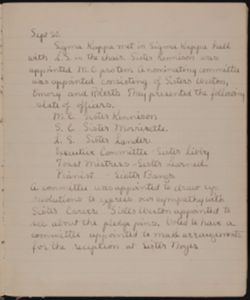 Sept 20
Sigma Kappa met in Sigma Kappa hall
with L.S. in the chair. Sister Kennison was
appointed M.C. pro tem. A nominating committee
was appointed consisting of Sisters Weston,
Emory and Roberts. They presented the following
slate of officers.
M.C. Sister Kennison
S.C. Sister Morrisette
L.S. Sister Lander
Executive Committee - Sister
Toast Mistress - Sister Learned
Pianist - Sister Bangs
A committee was appointed to draw up
resolutions to express our sympathy with
Sister Carver. Sister Weston appointed to
see about the pledge pins. Voted to have a
committee appointed to make arrangements
for the reception at Sister Noyes